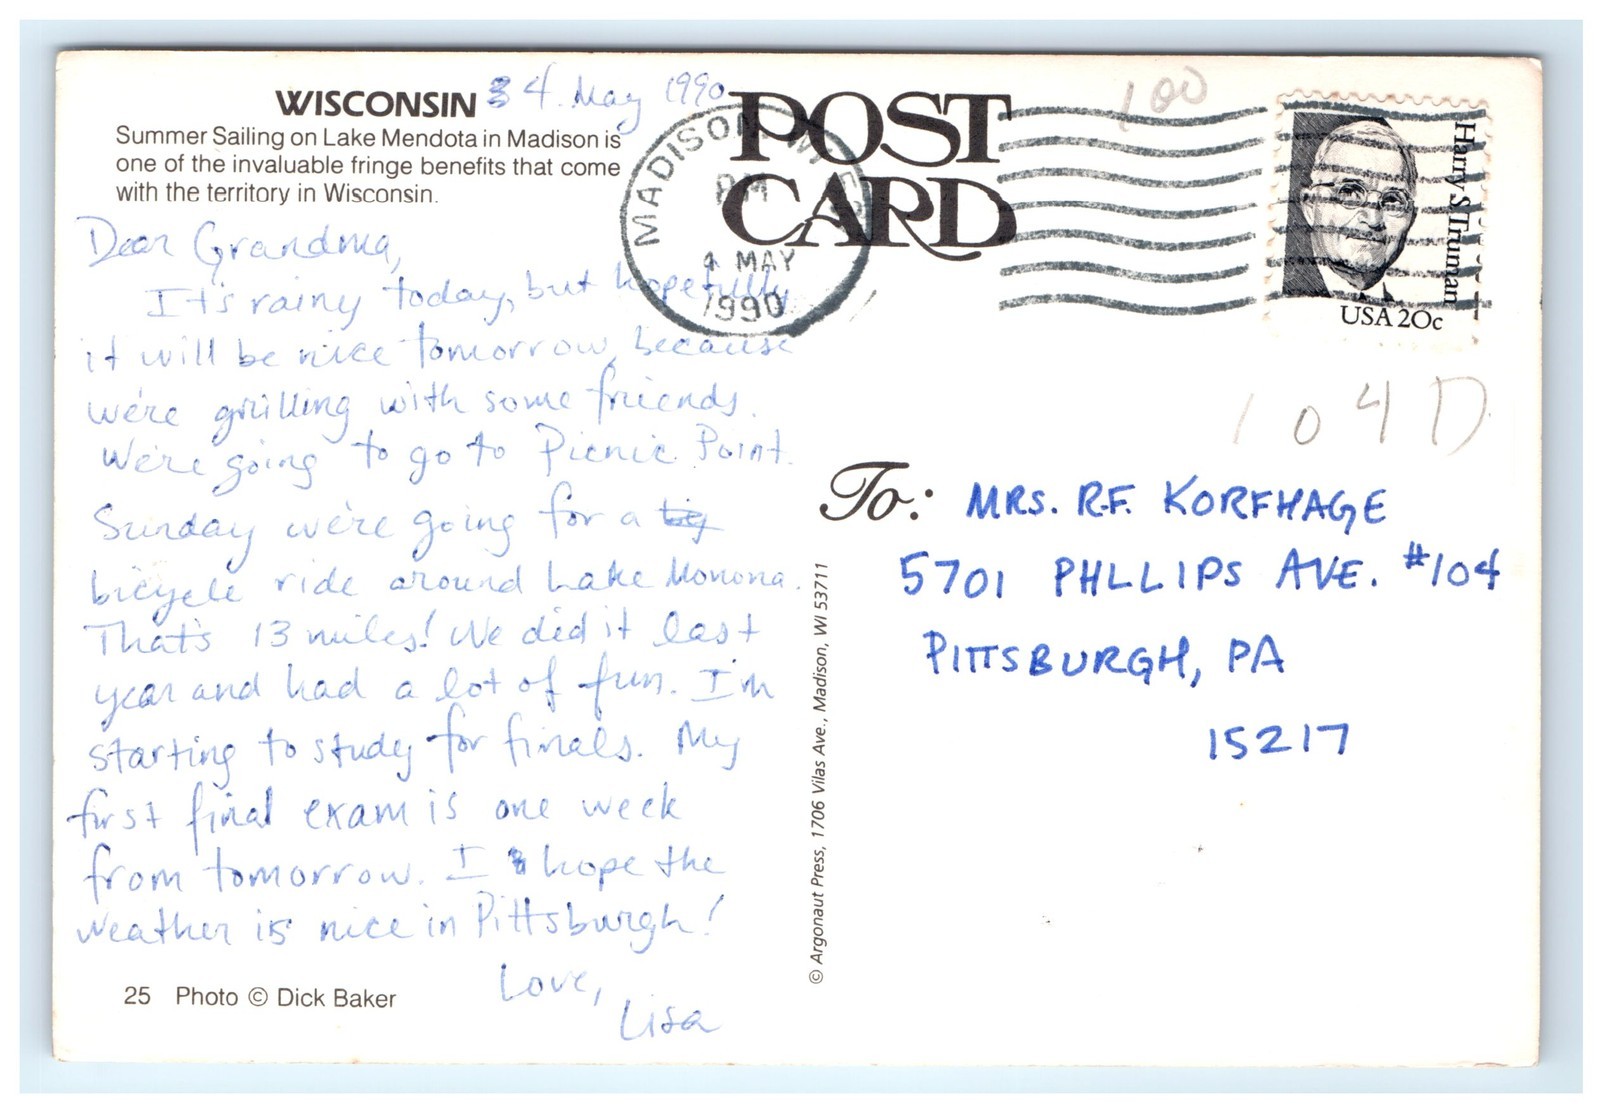 WISCONSIN
4. May 1990
Summer Sailing on Lake Mendota in Madison is
one of the invaluable fringe benefits that come
with the territory in Wisconsin.
Dear Grandma,
It's rainy today, but hopefully
it will be nice tomorrow, because
we're grilling with some friends.
We're going to go to Picnic Point.
Sunday we're going for a big
bicycle ride around Lake Monona.
That's 13 miles! We did it last
year and had a lot of fun. I'm
starting to study for finals. My
first final exam is one week
from tomorrow. I hope the
weather is nice in Pittsburgh!
Love,
Lisa
25 Photo © Dick Baker
POST
CARD
MADISON
PM
4 MAY
1990
100
Harry S. Truman
USA 20c
104D
To: MRS. R.F. KORFHAGE
5701 PHLLIPS AVE. #104
PITTSBURGH, PA
15217
© Argonaut Press, 1706 Vilas Ave., Madison, WI 53711